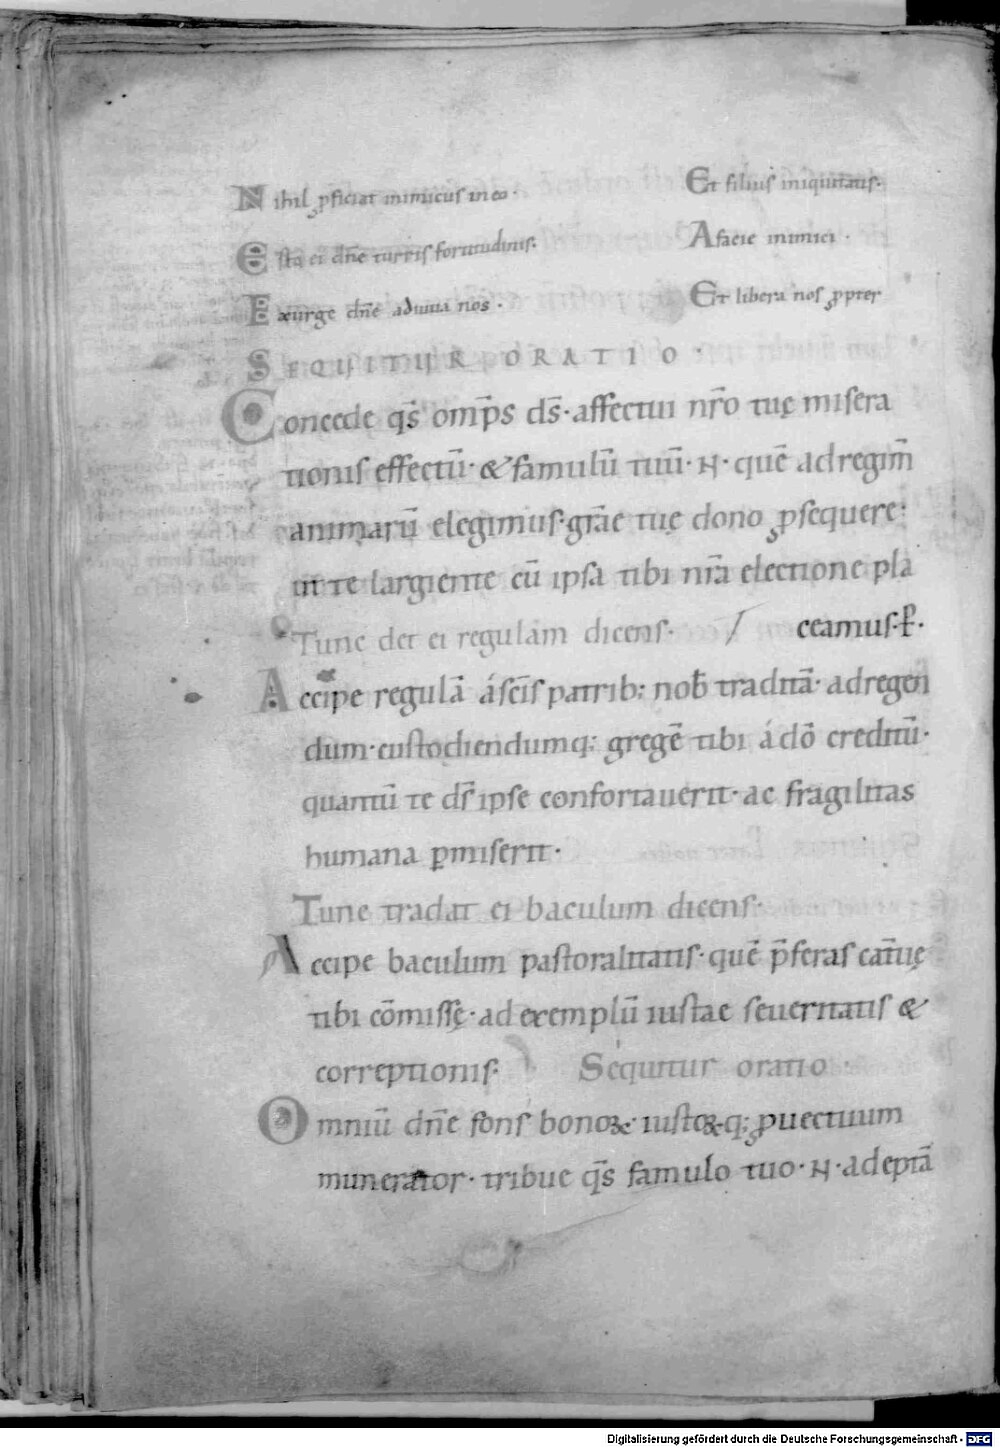 Nihil ꝓficiat inimicus in eo · Et filius iniquitatis·
Esto ei dn̄e turris fortitudinis· A facie inimici ·
Exurge dn̄e adiuua nos · Et libera nos ꝓpter
SEQUITUR ORATIO ·
Concede qs̄ omp̄s ds̄· affectui nr̄o tuę misera
tionis effectū· & famulū tuū· N· quē ad regim̄
animarū elegimus· gr̄ae tuę dono ꝓsequere·
ut te largiente cū ipsa tibi nr̄a electione pla
Tunc det ei regulam dicens· / ceamus· ꝑ·
Accipe regulā á sc̄is patrib; nob̄ traditā· ad regen
dum· custodiendumq; gregē tibi á dō creditū·
quantū te ds̄ ipse confortauerit· ac fragilitas
humana ꝑmiserit·
Tunc tradat ei baculum dicens·
Accipe baculum pastoralitatis· quē p̄feras cat̄uę
tibi cōmissę· ad exemplū iustae seueritatis &
correptionis· Sequitur oratio ·
Omniū dn̄e fons bonoꝝ· iustoꝝq; ꝓuectuum
munerator· tribue qs̄ famulo tuo· N· adeptā
Digitalisierung gefördert durch die Deutsche Forschungsgemeinschaft - DFG